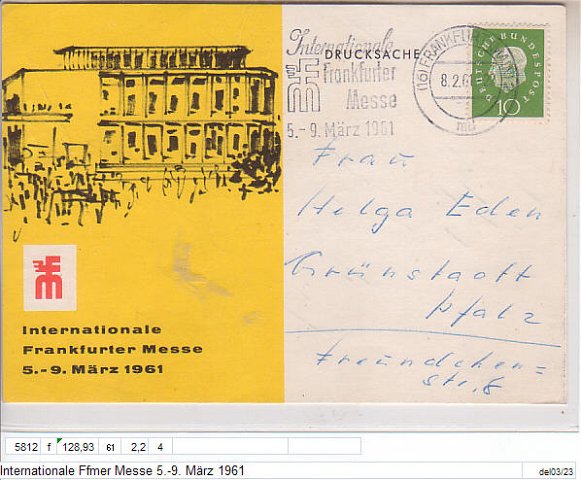 Internationale
Frankfurter
Messe
5.-9. März 1961
DRUCKSACHE
(16) FRANKFURT
8.2.61
DEUTSCHE BUNDESPOST
10
Frau
Helga Eden
Grünstadt
Pfalz
Freundchen=
str. 8
Internationale
Frankfurter Messe
5.-9. März 1961
5812 f 128,93 61 2,2 4
Internationale Ffmer Messe 5.-9. März 1961
del03/23